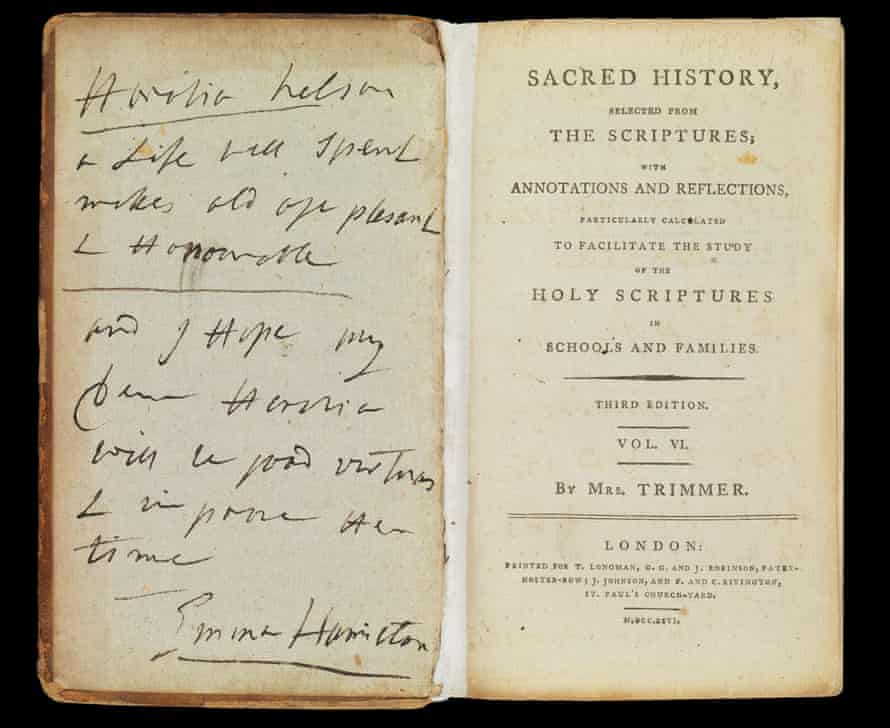 Horatia Nelson
a Life well Spent
makes old age pleasant
& Honourable
and I Hope my
Dear Horatia
will be good virtuous
& improve Her
time
Emma Hamilton
SACRED HISTORY,
SELECTED FROM
THE SCRIPTURES;
WITH
ANNOTATIONS AND REFLECTIONS,
PARTICULARLY CALCULATED
TO FACILITATE THE STUDY
OF THE
HOLY SCRIPTURES
IN
SCHOOLS AND FAMILIES.
THIRD EDITION.
VOL. VI.
BY MRS. TRIMMER.
LONDON:
PRINTED FOR T. LONGMAN, G. G. AND J. ROBINSON, PATER-
NOSTER-ROW; J. JOHNSON, AND F. AND C. RIVINGTON,
ST. PAUL'S CHURCH-YARD.
M.DCC.XCVI.